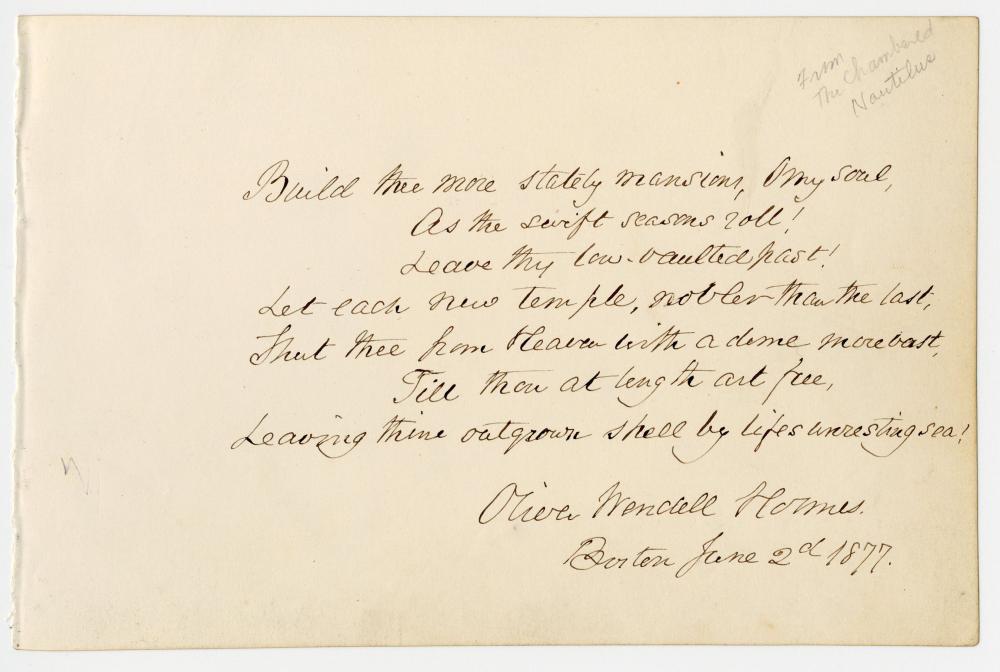 From
The Chambered
Nautilus
Build thee more stately mansions, O my soul,
As the swift seasons roll!
Leave thy low-vaulted past!
Let each new temple, nobler than the last,
Shut thee from Heaven with a dome more vast,
Till thou at length art free,
Leaving thine outgrown shell by lifes unresting sea!
Oliver Wendell Holmes.
Boston June 2d 1877.